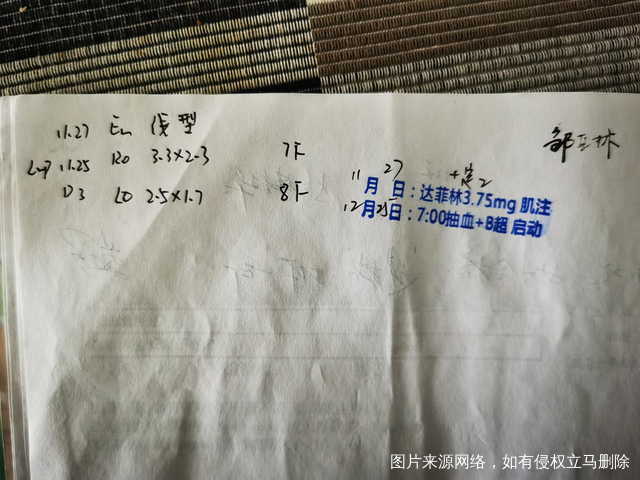 11.27 En 线型
Lmp 11.25 Ro 3.3×2.3 7F
D3 Lo 2.5×1.7 8F
11月27日：达菲林3.75mg 肌注
12月25日：7:00抽血+B超 启动
图片来源网络，如有侵权立马删除